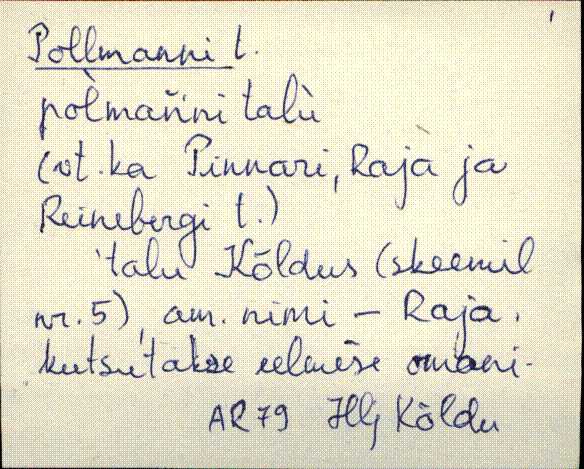 Pollmanni t.
pòlmańni talù
(vt. ka Pinnari, Raja ja
Reinebergi t.)
talu Kõldus (skeemil
nr. 5), am. nimi – Raja,
kutsutakse eelmise omani-
AR 79 Hlj Kõldu